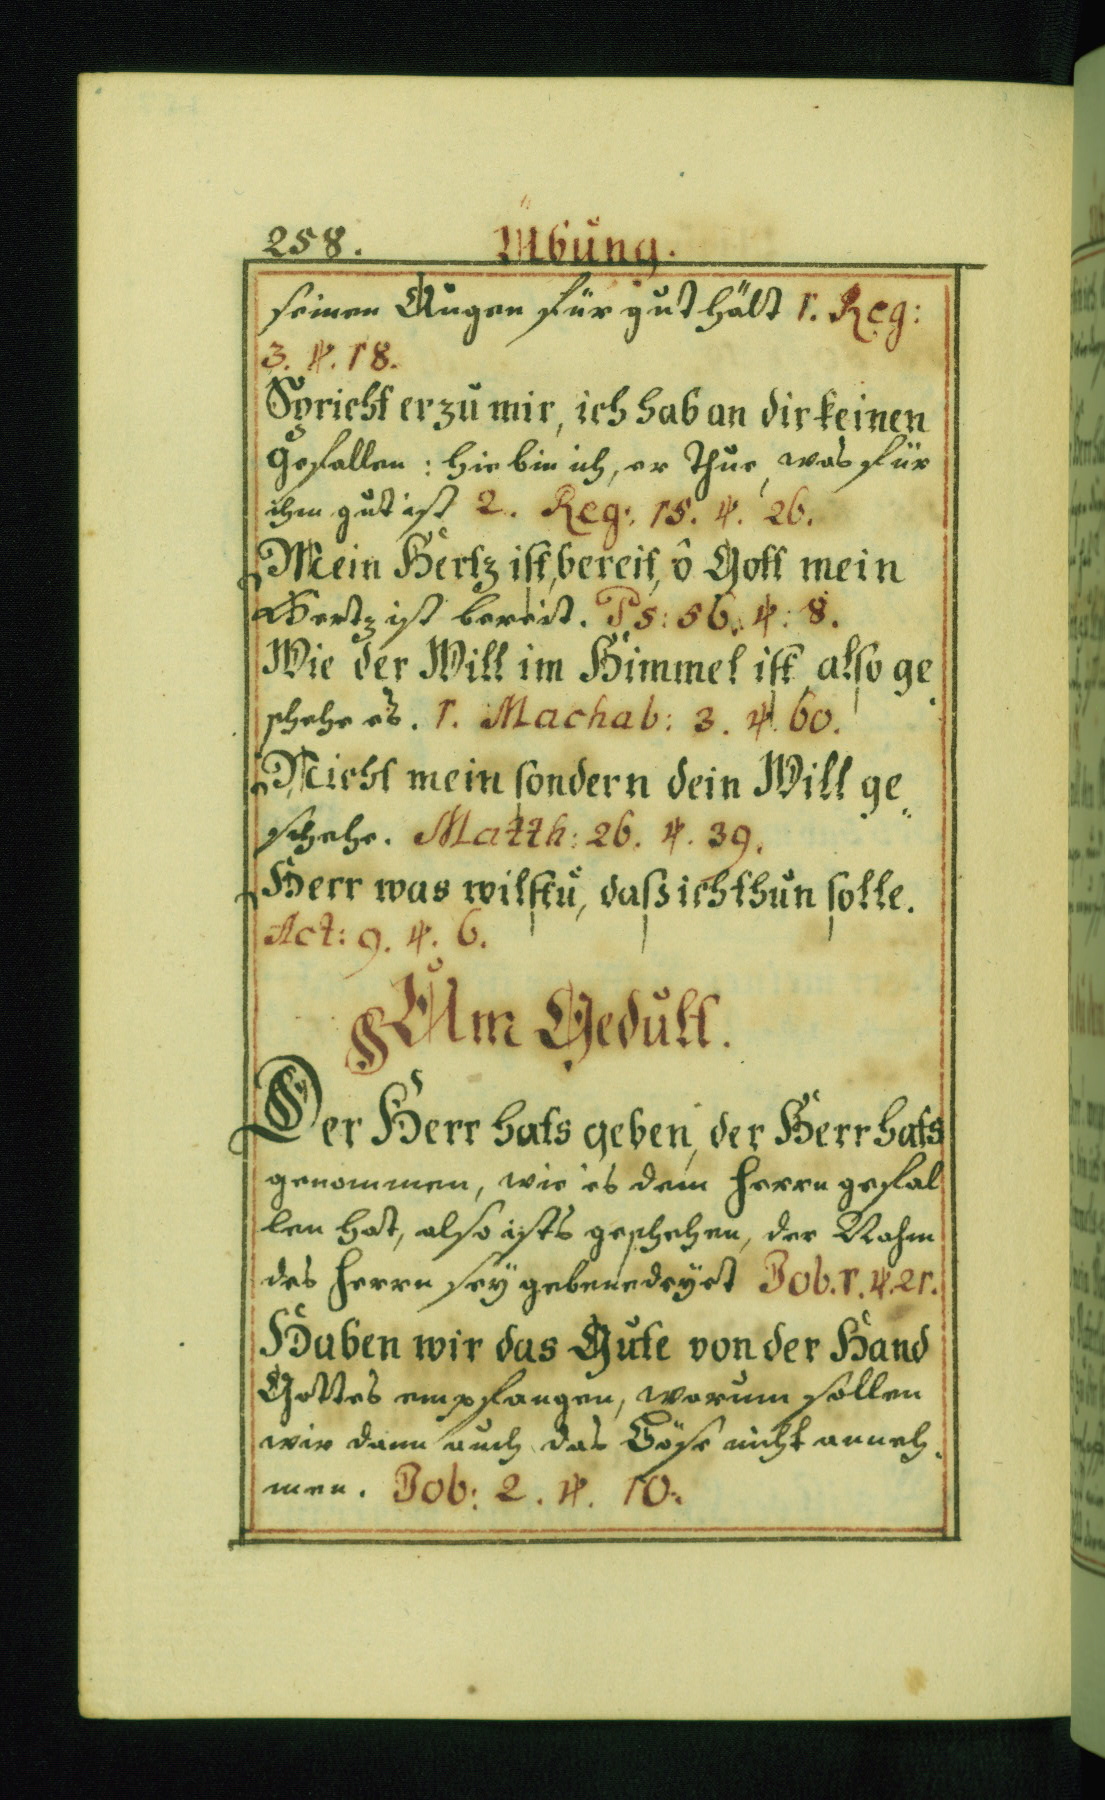 258. Übung.
seinen Augen für gut hält 1. Reg:
3. ℣. 18.
Spricht er zu mir, ich hab an dir keinen
Gefallen: hie bin ich, er thue, was für
ihm gut ist 2. Reg: 15. ℣. 26.
Mein Hertz ist, bereit, ô Gott mein
Hertz ist bereit. Ps: 56. ℣: 8.
Wie der Will im Himmel ist also ge
schehe es. 1. Machab: 3. ℣. 60.
Nicht mein sondern dein Will ge„
schehe. Matth: 26. ℣. 39.
Herr was wilstu, dasz ich thun solle.
Act: 9. ℣. 6.
Um Gedult.
Der Herr hats geben, der Herr hats
genommen, wie es dem Herrn gefal
len hat, also ists geschehen, der Nahm
des Herrn sey gebenedeyet Job. 1. ℣. 21.
Haben wir das Gute von der Hand
Gottes empfangen, warum sollen
wir dann auch das Böse nicht anneh„
men. Job: 2. ℣. 10.